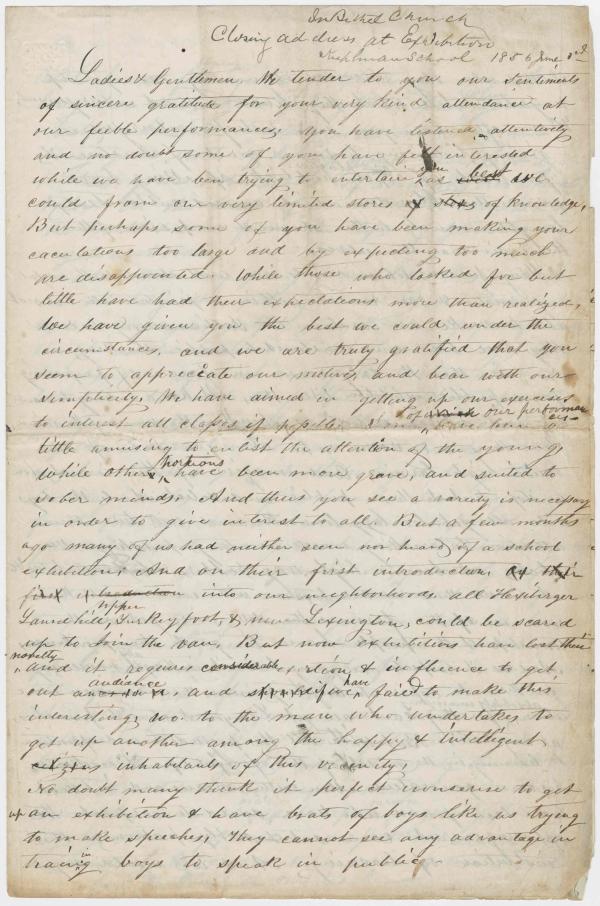 In Bethel Church
Closing address at Exhibition
School 1856 June 3rd
Ladies & Gentlemen We tender to you our sentiments
of sincere gratitude for your very kind attendance at
our feeble performances. You have listened attentively
and no doubt some of you have felt interested
while we have been trying to entertain you as best we
could from our very limited stores of of knowledge,
But perhaps some of you have been making your
caculations too large and by expecting too much
are disappointed. While those who looked for but
little have had their expectations more than realized,
We have given you the best we could under the
circumstances, and we are truly gratified that you
seem to appreciate our motives, and bear with our
simplicity. We have aimed in getting up our exercises
to interest all classes if possible. our performan
ces have been a
little amusing to enlist the attention of the young,
While other portions have been more grave, and suited to
sober minds. And thus you see a variety is necessary
in order to give interest to all. But a few months
ago many of us had neither seen nor heard of a school
exhibition, And on their first introduction
first introduction into our neighborhoods all
upper
Laurel hill, Turkeyfoot, & New Lexington, could be scared
up to join the van, But now exhibitions have lost their
novelty
and it requires considerable exertion & influence to get
audiance
out, and if we have faied to make this
interesting, wo. to the man who undertakes to
get up another among the happy & intelligent
inhabitants of this vicinity,
No doubt many think it perfect nonsense to get
up an exhibition & have brats of boys like us trying
to make speeches, They cannot see any advantage in
traing in boys to speak in public